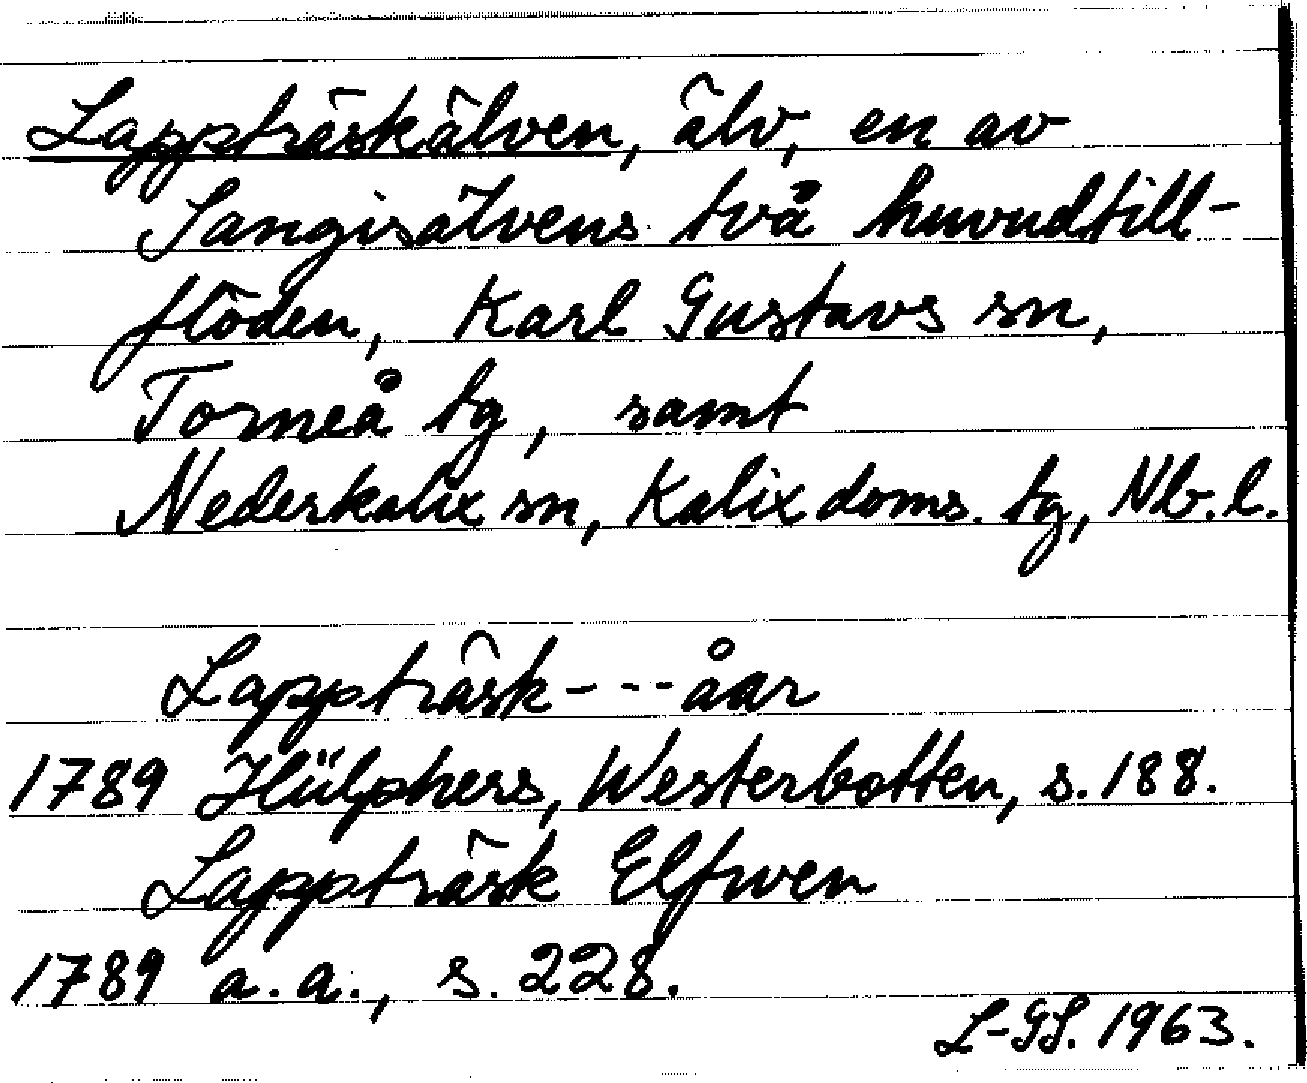 Lappträskälven, älv, en av
Sangisälvens två huvudtill-
flöden, Karl Gustavs sn,
Torneå tg, samt
Nederkalix sn, Kalix doms. tg, Nb. l.
Lappträsk - - - åar
1789 Hülphers, Westerbotten, s. 188.
Lappträsk Elfwen
1789 a. a., s. 228.
L-GS. 1963.